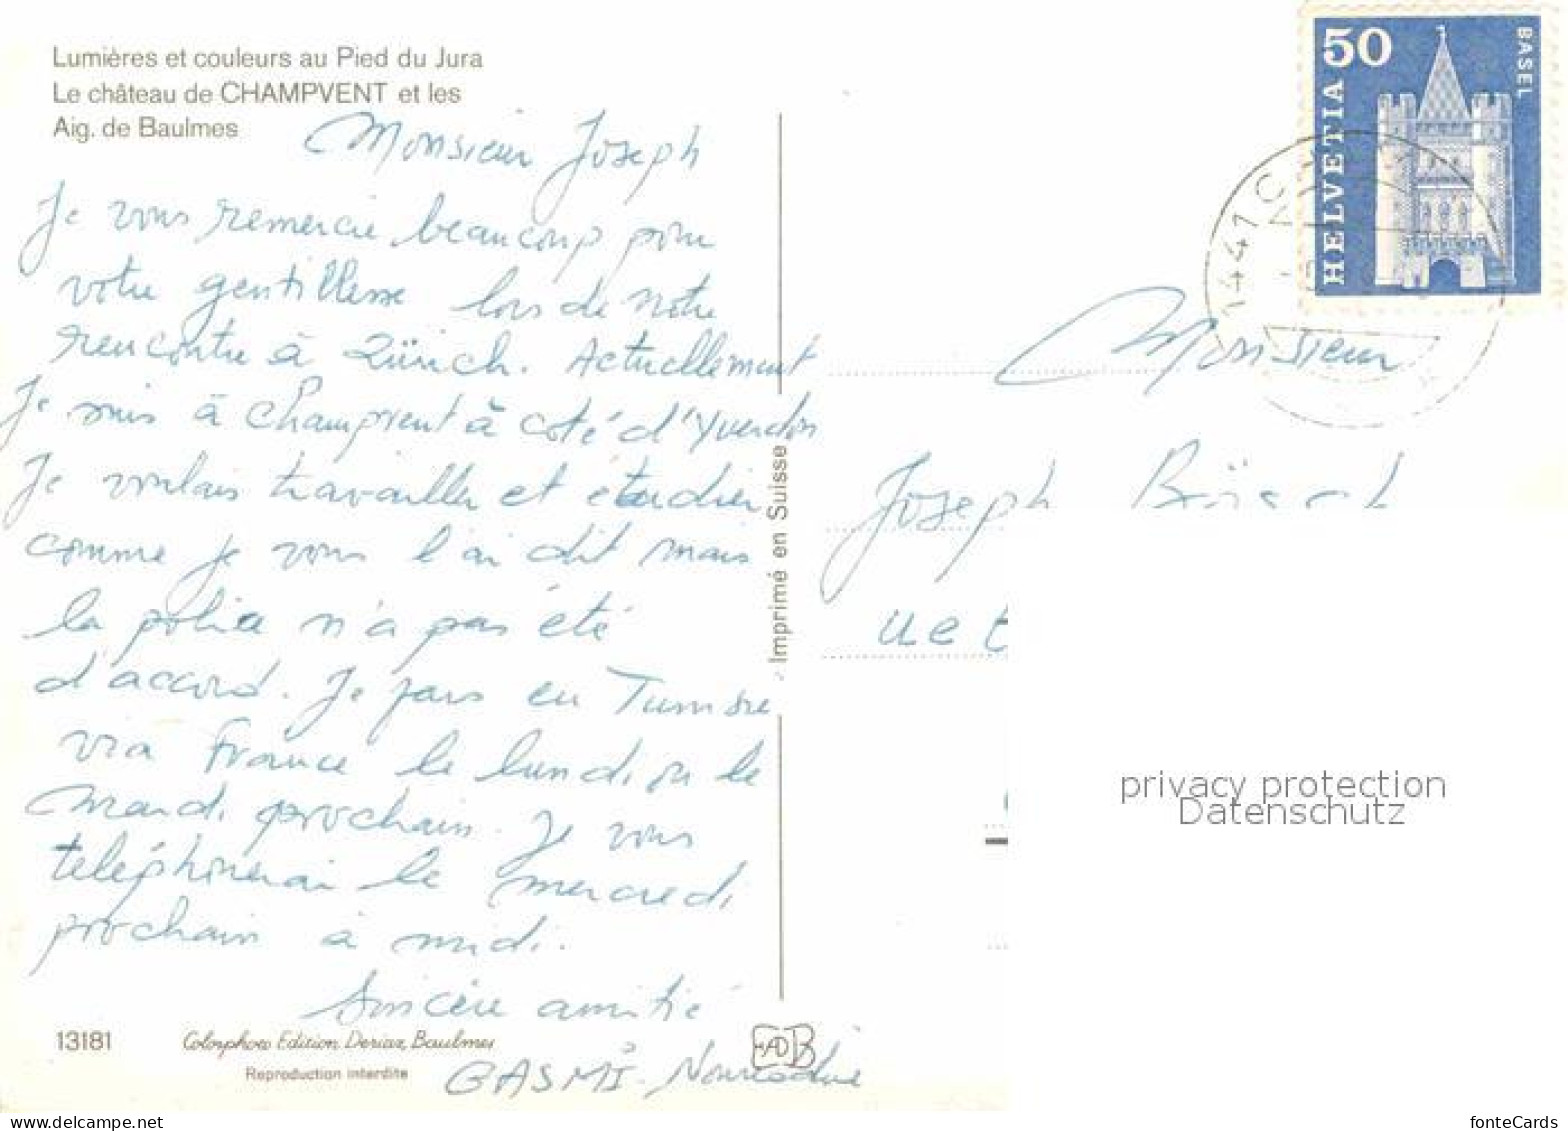 Lumières et couleurs au Pied du Jura
Le château de CHAMPVENT et les
Aig. de Baulmes
Monsieur Joseph
Je vous remercie beaucoup pour
votre gentillesse lors de notre
rencontre à Zürich. Actuellement
Je suis à Champvent à coté d'Yverdon
Je voulais travailler et étudier
comme je vous l'ai dit mais
la police n'a pas été
d'accord. Je pars en Tunisie
via France le lundi ou le
Mardi prochain. Je vous
telephonerai le mercredi
prochain à midi.
Sincère amitié
GASMI Noureddine
13181
Colorphoto Edition Deriaz, Baulmes
Reproduction interdite
Imprimé en Suisse
50
HELVETIA
BASEL
1441
Monsieur
Joseph
privacy protection
Datenschutz
fonteCards